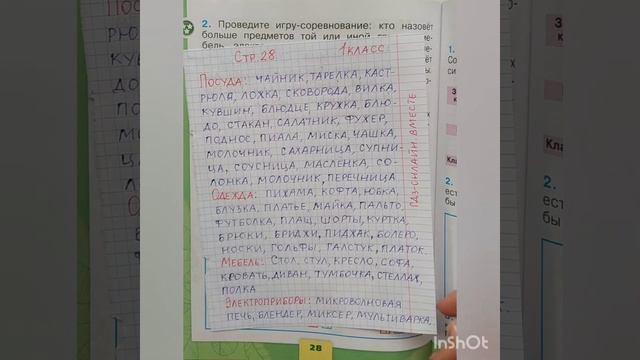 2. Проведите игру-соревнование: кто назовёт
больше предметов той или иной
СТР.28. 1 КЛАСС
ПОСУДА: ЧАЙНИК, ТАРЕЛКА, КАСТ-
РЮЛЯ, ЛОЖКА, СКОВОРОДА, ВИЛКА,
КУВШИН, БЛЮДЦЕ, КРУЖКА, БЛЮ-
ДО, СТАКАН, САЛАТНИК, ФУЖЕР,
ПОДНОС, ПИАЛА, МИСКА, ЧАШКА,
МОЛОЧНИК, САХАРНИЦА, СУПНИ-
ЦА, СОУСНИЦА, МАСЛЕНКА, СО-
ЛОНКА, МОЛОЧНИК, ПЕРЕЧНИЦА
ОДЕЖДА: ПИЖАМА, КОФТА, ЮБКА,
БЛУЗКА, ПЛАТЬЕ, МАЙКА, ПАЛЬТО,
ФУТБОЛКА, ПЛАЩ, ШОРТЫ, КУРТКА,
БРЮКИ, БРИДЖИ, ПИДЖАК, БОЛЕРО,
НОСКИ, ГОЛЬФЫ, ГАЛСТУК, ПЛАТОК.
МЕБЕЛЬ: СТОЛ, СТУЛ, КРЕСЛО, СОФА,
КРОВАТЬ, ДИВАН, ТУМБОЧКА, СТЕЛЛАЖ,
ПОЛКА
ЭЛЕКТРОПРИБОРЫ: МИКРОВОЛНОВАЯ
ПЕЧЬ, БЛЕНДЕР, МИКСЕР, МУЛЬТИВАРКА,
ГДЗ-ОНЛАЙН ВМЕСТЕ
28
InShOt